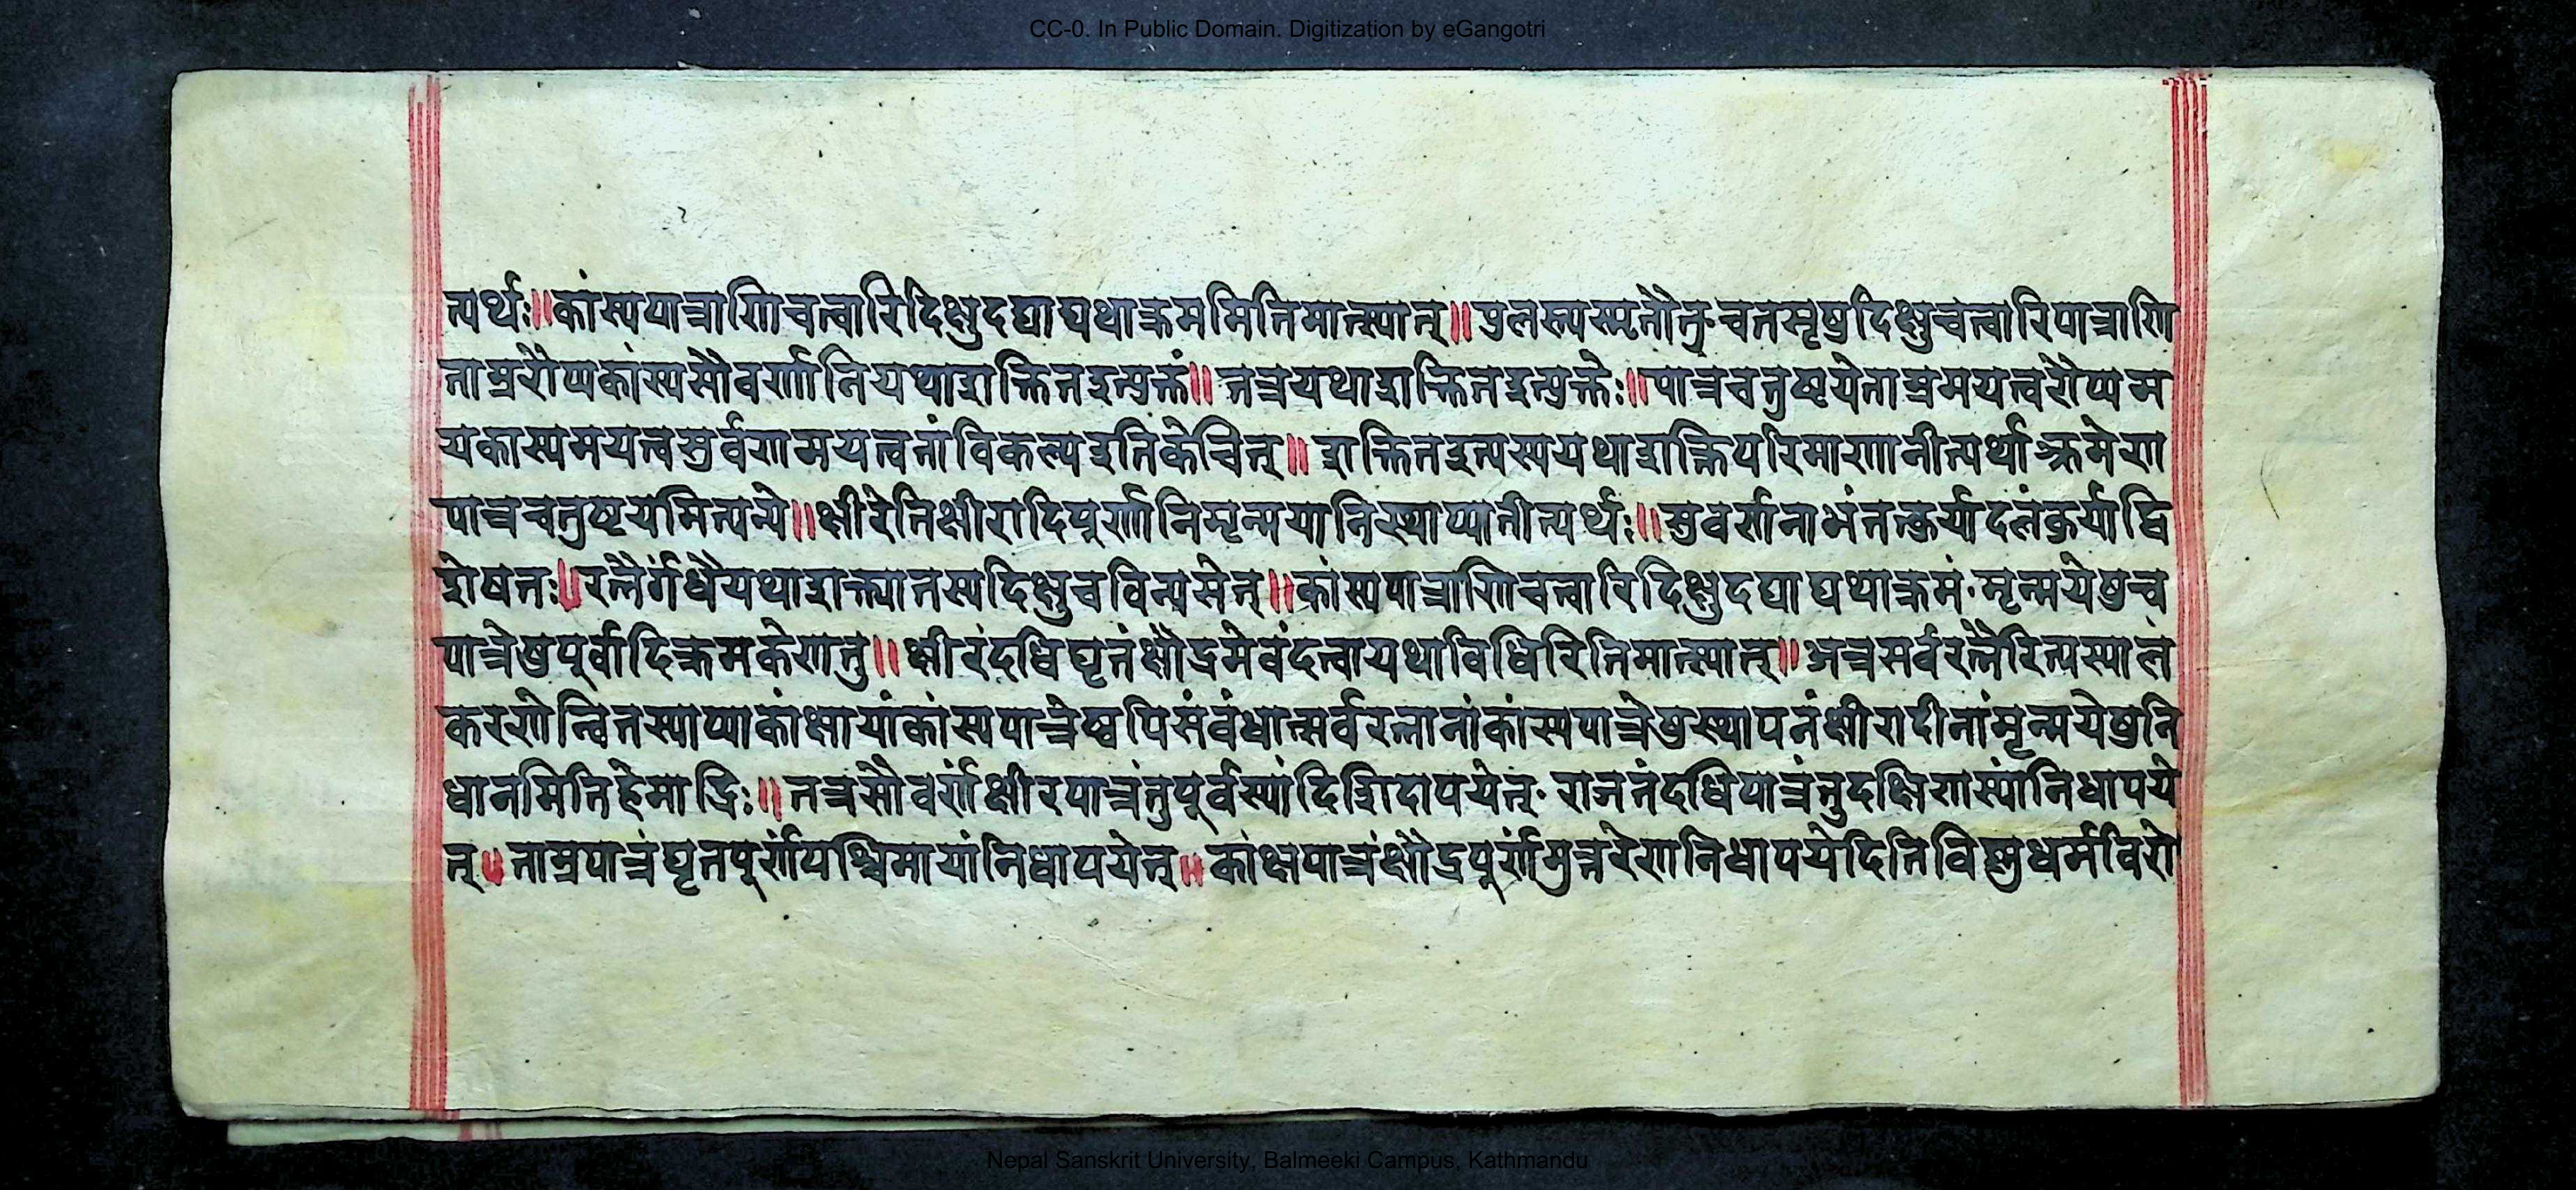 CC-0. In Public Domain. Digitization by eGangotri
त्यर्थः॥कांस्यपात्राणिचत्वारिदिक्षुदद्याद्यथाक्रममितिमात्स्यात्॥पुलस्त्यस्मृतौतु॰चतसृषुदिक्षुचत्वारिपात्राणि
ताम्ररौप्यकांस्यसौवर्णानियथाशक्तितइत्युक्तं॥तत्रयथाशक्तितइत्युक्तेः॥पात्रचतुष्टयेताम्रमयत्वरौप्यम
यकास्यमयत्वसुर्वणमयत्वनांविकल्पइतिकेचित्॥शक्तितइत्यस्ययथाशक्तिपरिमाणानीत्यर्थाक्रमेण
पात्रचतुष्टयमित्यन्ये॥क्षीरेतिक्षीरादिपूर्णानिमृन्मयानिस्थाप्यानीत्यर्थः॥सुवर्णनाभंतत्कुर्यादलंकुर्याद्वि
शेषतः॥रत्नैर्गंधैयथाशक्त्यातस्यदिक्षुचविन्यसेत्॥कांस्यपात्राणिचत्वारिदिक्षुदद्याद्यथाक्रमं॰मृन्मयेषुच
पात्रेषुपूर्वादिक्रमकेणतु॥क्षीरंदधिघृतंक्षौद्रमेवंदत्वायथाविधिरितिमात्स्यात्॥अत्रसर्वरत्नैरित्यस्यालं
करणेन्वितस्याप्याकांक्षायांकांस्यपात्रेष्वपिसंवंधात्सर्वरत्नानांकांस्यपात्रेषुस्थापनंक्षीरादीनांमृन्मयेषुनि
धानमितिहेमाद्रिः॥तत्रसौवर्णंक्षीरपात्रंतुपूर्वस्यांदिशिदापयेत्॰राजतंदधिपात्रंतुदक्षिणस्यांनिधापये
त्॥ताम्रपात्रंघृतपूर्णंपश्चिमायांनिधापयेत्॥कांक्षपात्रंक्षौद्रपूर्णमुत्तरेणनिधापयेदितिविष्णुधर्मविरो
Nepal Sanskrit University, Balmeeki Campus, Kathmandu